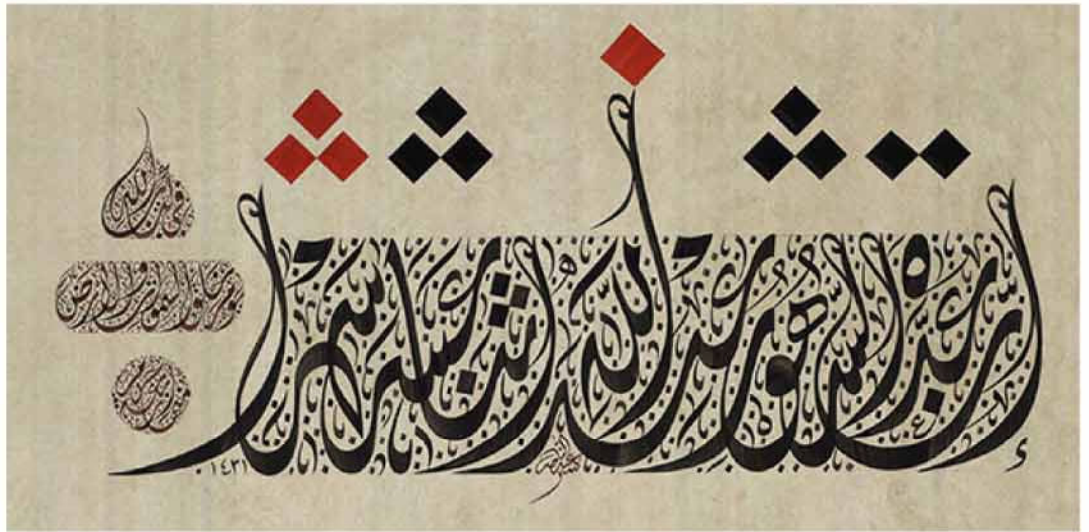 إن عدة الشهور عند الله اثنا عشر شهرا
في كتاب الله
يوم خلق السموات والأرض
منها أربعة حرم
١٤٣١